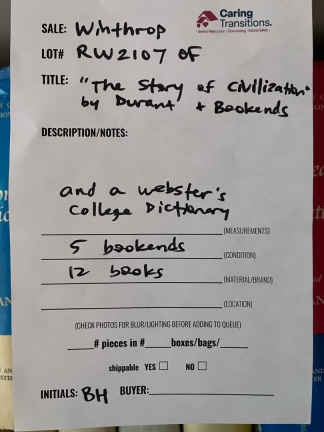 Caring
Transitions.
SALE: Winthrop
LOT# RW2107 OF
TITLE: "The Story of Civilization"
by Durant + Bookends
DESCRIPTION/NOTES:
and a webster's
College Dictionary
(MEASUREMENTS)
5 bookends (CONDITION)
12 books (MATERIAL/BRAND)
(LOCATION)
(CHECK PHOTOS FOR BLUR/LIGHTING BEFORE ADDING TO QUEUE)
# pieces in # boxes/bags/
shippable YES NO
INITIALS: BH BUYER: